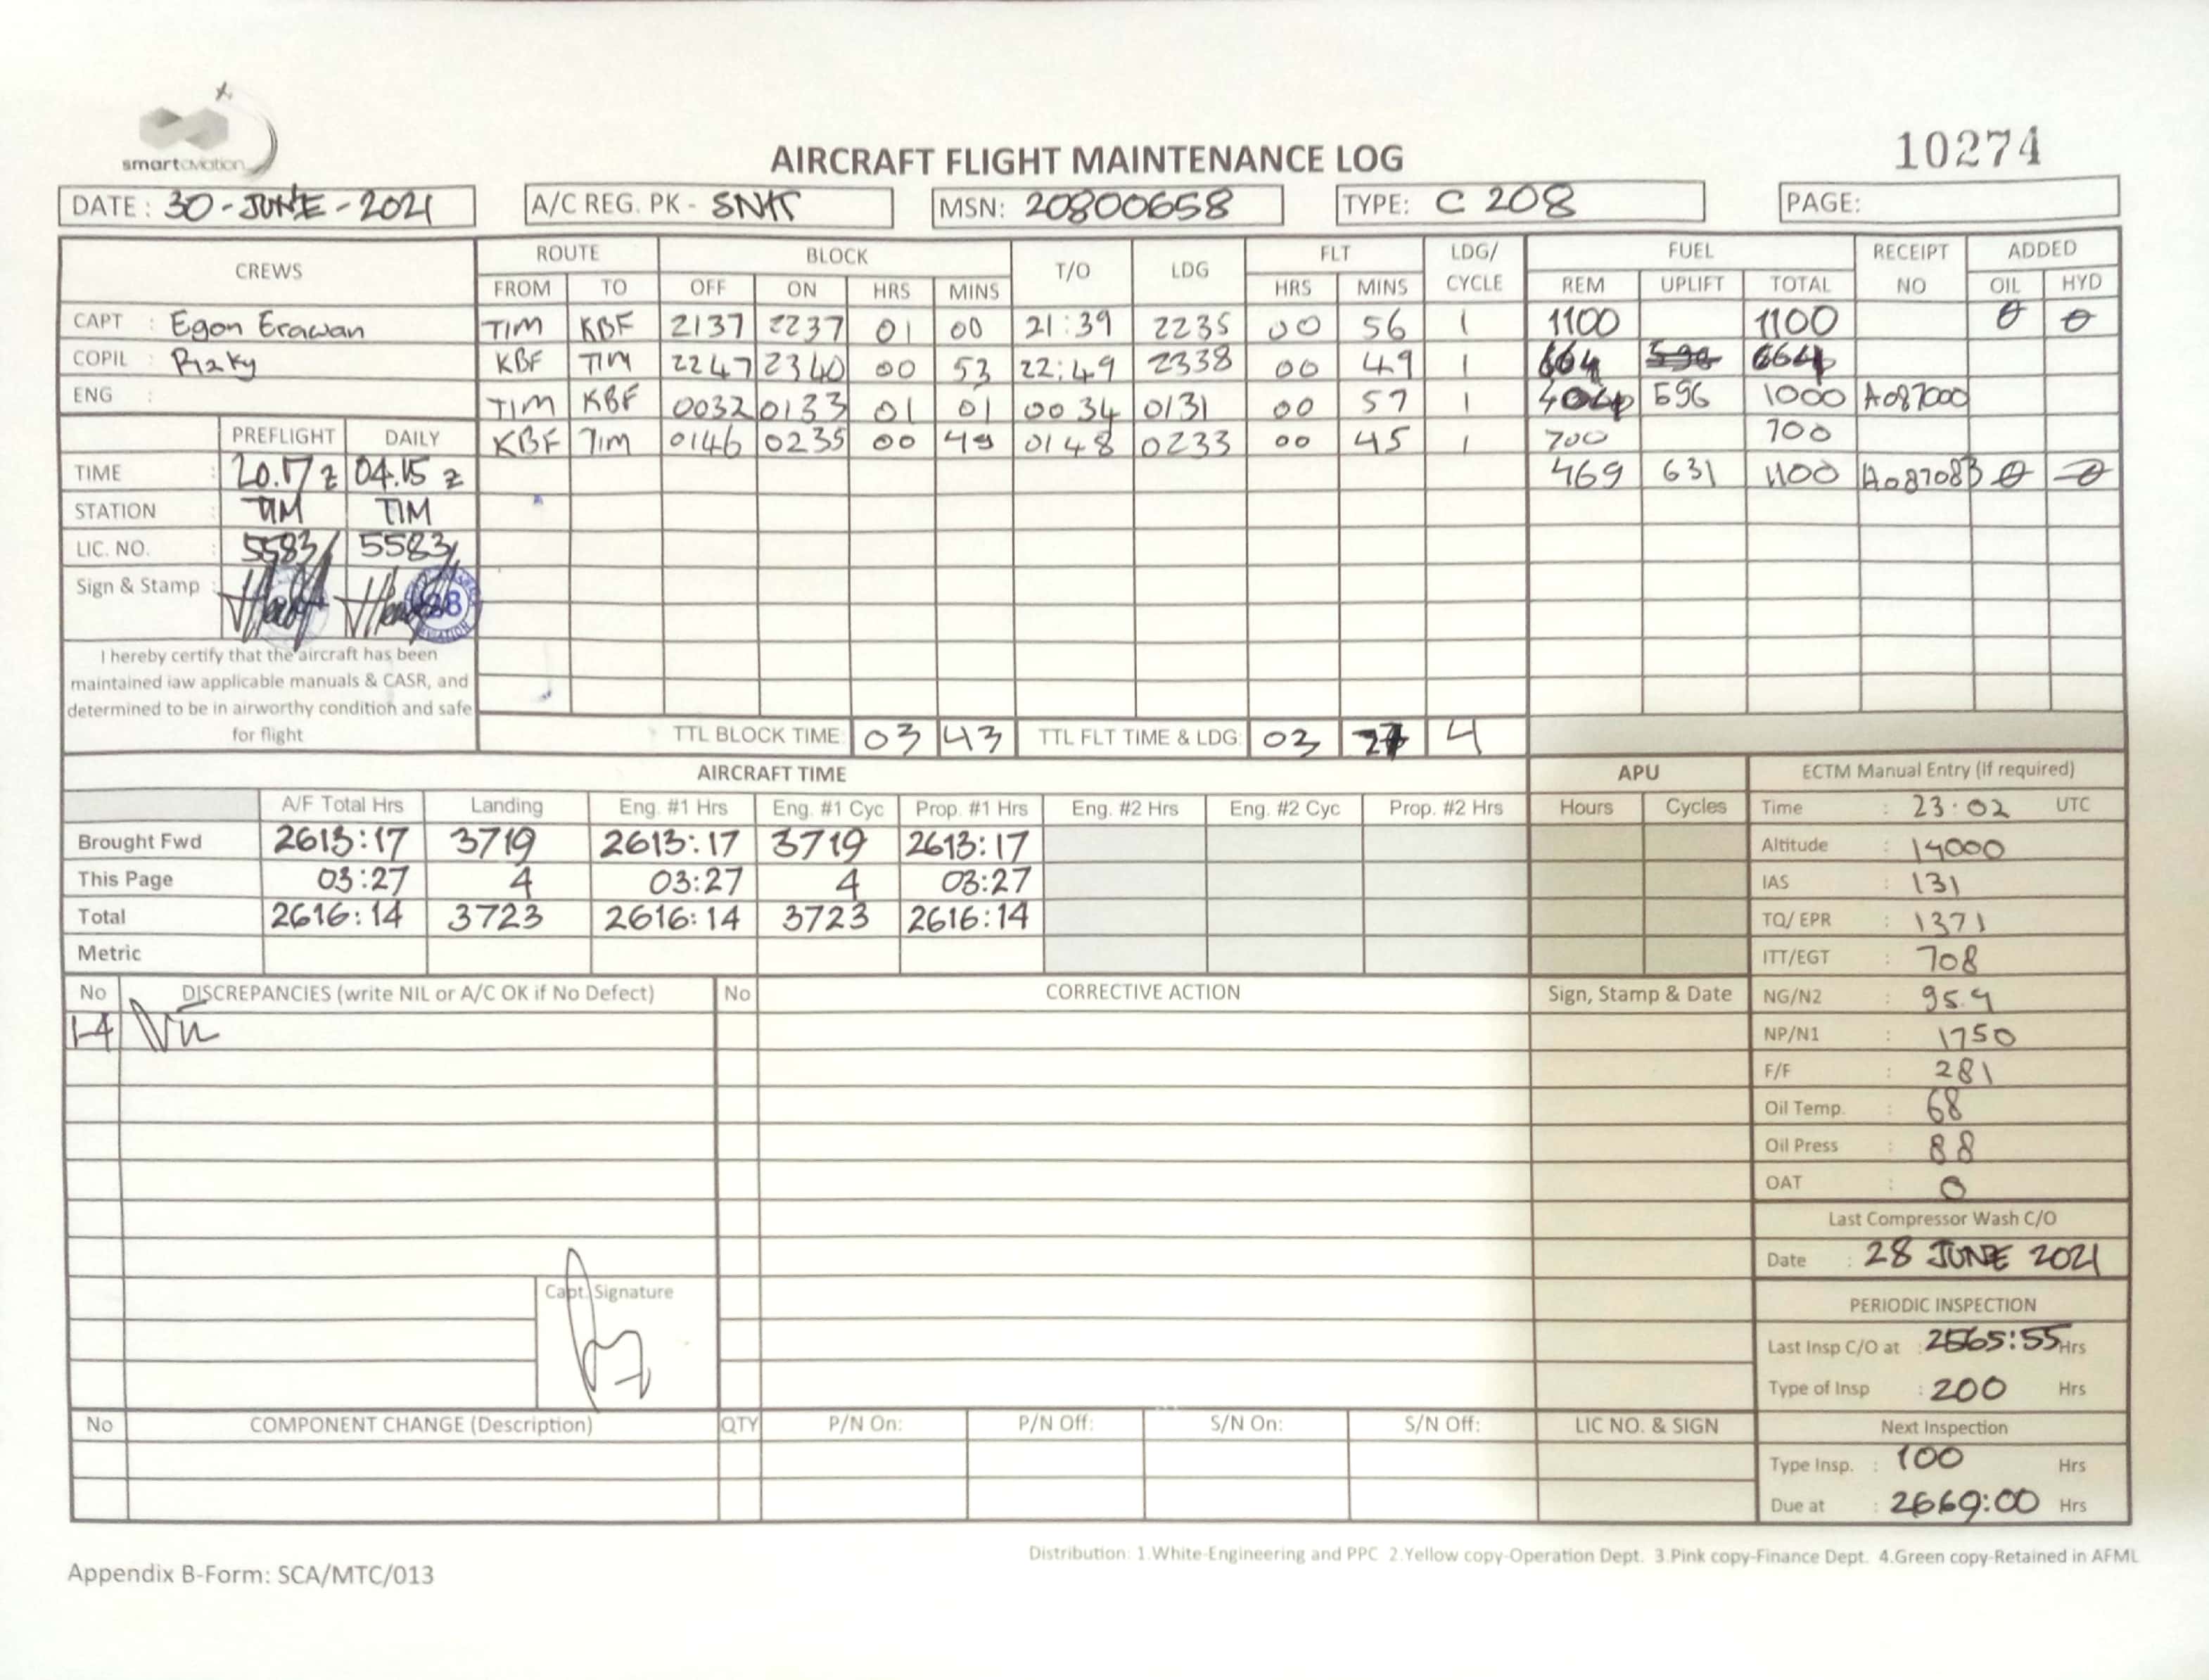 smartaviation
10274
AIRCRAFT FLIGHT MAINTENANCE LOG
DATE : 30-JUNE-2021 A/C REG. PK - SNK MSN: 20800658 TYPE: C 208 PAGE:
CREWS ROUTE BLOCK T/O LDG FLT LDG/ CYCLE FUEL RECEIPT NO ADDED
FROM TO OFF ON HRS MINS HRS MINS REM UPLIFT TOTAL OIL HYD
CAPT : Egon Erawan TIM KBF 2137 2237 01 00 21:39 2235 00 56 1 1100 1100 0 0
COPIL : Rizky KBF TIM 2247 2340 00 53 22:49 2338 00 49 1 664 664
ENG : TIM KBF 0032 0133 01 01 0034 0131 00 57 1 404 596 1000 A087000
PREFLIGHT DAILY KBF TIM 0146 0235 00 49 0148 0233 00 45 1 700 700
TIME : 20.17 z 04.15 z 469 631 1100 A087083 0 0
STATION : TIM TIM
LIC. NO. : 5583 5583
Sign & Stamp :
I hereby certify that the aircraft has been
maintained iaw applicable manuals & CASR, and
determined to be in airworthy condition and safe
for flight
TTL BLOCK TIME: 03 43 TTL FLT TIME & LDG: 03 27 4
AIRCRAFT TIME APU ECTM Manual Entry (If required)
A/F Total Hrs Landing Eng. #1 Hrs Eng. #1 Cyc Prop. #1 Hrs Eng. #2 Hrs Eng. #2 Cyc Prop. #2 Hrs Hours Cycles Time : 23:02 UTC
Brought Fwd 2613:17 3719 2613:17 3719 2613:17 Altitude : 14000
This Page 03:27 4 03:27 4 03:27 IAS : 131
Total 2616:14 3723 2616:14 3723 2616:14 TQ/ EPR : 1371
Metric ITT/EGT : 708
No DISCREPANCIES (write NIL or A/C OK if No Defect) No CORRECTIVE ACTION Sign, Stamp & Date NG/N2 : 95.9
1-4 Nil NP/N1 : 1750
F/F : 281
Oil Temp. : 68
Oil Press : 88
OAT : 0
Last Compressor Wash C/O
Date : 28 JUNE 2021
Capt. Signature
PERIODIC INSPECTION
Last Insp C/O at : 2565:55 Hrs
Type of Insp : 200 Hrs
No COMPONENT CHANGE (Description) QTY P/N On: P/N Off: S/N On: S/N Off: LIC NO. & SIGN Next Inspection
Type Insp. : 100 Hrs
Due at : 2669:00 Hrs
Distribution: 1.White-Engineering and PPC 2.Yellow copy-Operation Dept. 3.Pink copy-Finance Dept. 4.Green copy-Retained in AFML
Appendix B-Form: SCA/MTC/013